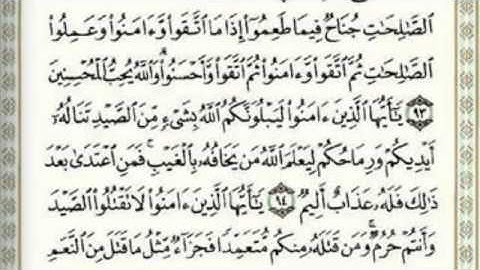 ٱلصَّـٰلِحَـٰتِ جُنَاحٌ فِيمَا طَعِمُوٓا۟ إِذَا مَا ٱتَّقَوا۟ وَّءَامَنُوا۟ وَعَمِلُوا۟
ٱلصَّـٰلِحَـٰتِ ثُمَّ ٱتَّقَوا۟ وَّءَامَنُوا۟ ثُمَّ ٱتَّقَوا۟ وَّأَحْسَنُوا۟ۗ وَٱللَّهُ يُحِبُّ ٱلْمُحْسِنِينَ
٩٣ يَـٰٓأَيُّهَا ٱلَّذِينَ ءَامَنُوا۟ لَيَبْلُوَنَّكُمُ ٱللَّهُ بِشَىْءٍ مِّنَ ٱلصَّيْدِ تَنَالُهُۥٓ
أَيْدِيكُمْ وَرِمَاحُكُمْ لِيَعْلَمَ ٱللَّهُ مَن يَخَافُهُۥ بِٱلْغَيْبِۚ فَمَنِ ٱعْتَدَىٰ بَعْدَ
ذَٰلِكَ فَلَهُۥ عَذَابٌ أَلِيمٌ ٩٤ يَـٰٓأَيُّهَا ٱلَّذِينَ ءَامَنُوا۟ لَا تَقْتُلُوا۟ ٱلصَّيْدَ
وَأَنتُمْ حُرُمٌۚ وَمَن قَتَلَهُۥ مِنكُم مُّتَعَمِّدًا فَجَزَآءٌ مِّثْلُ مَا قَتَلَ مِنَ ٱلنَّعَمِ